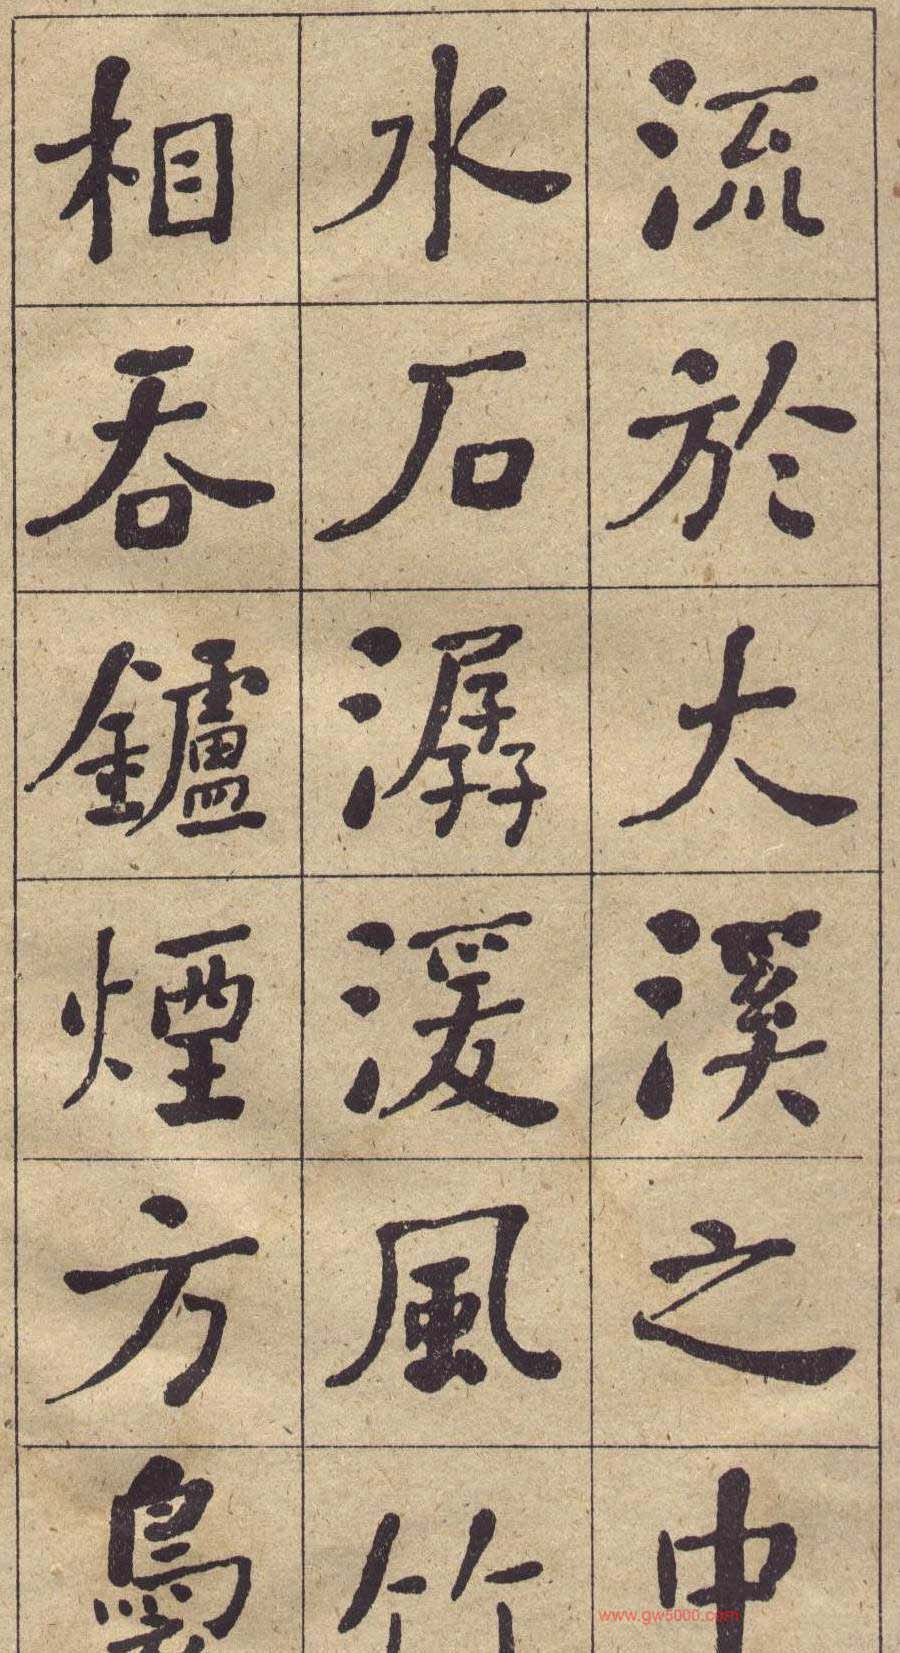 流於大溪之中
水石潺湲風竹
相吞鑪煙方
www.gw5000.com